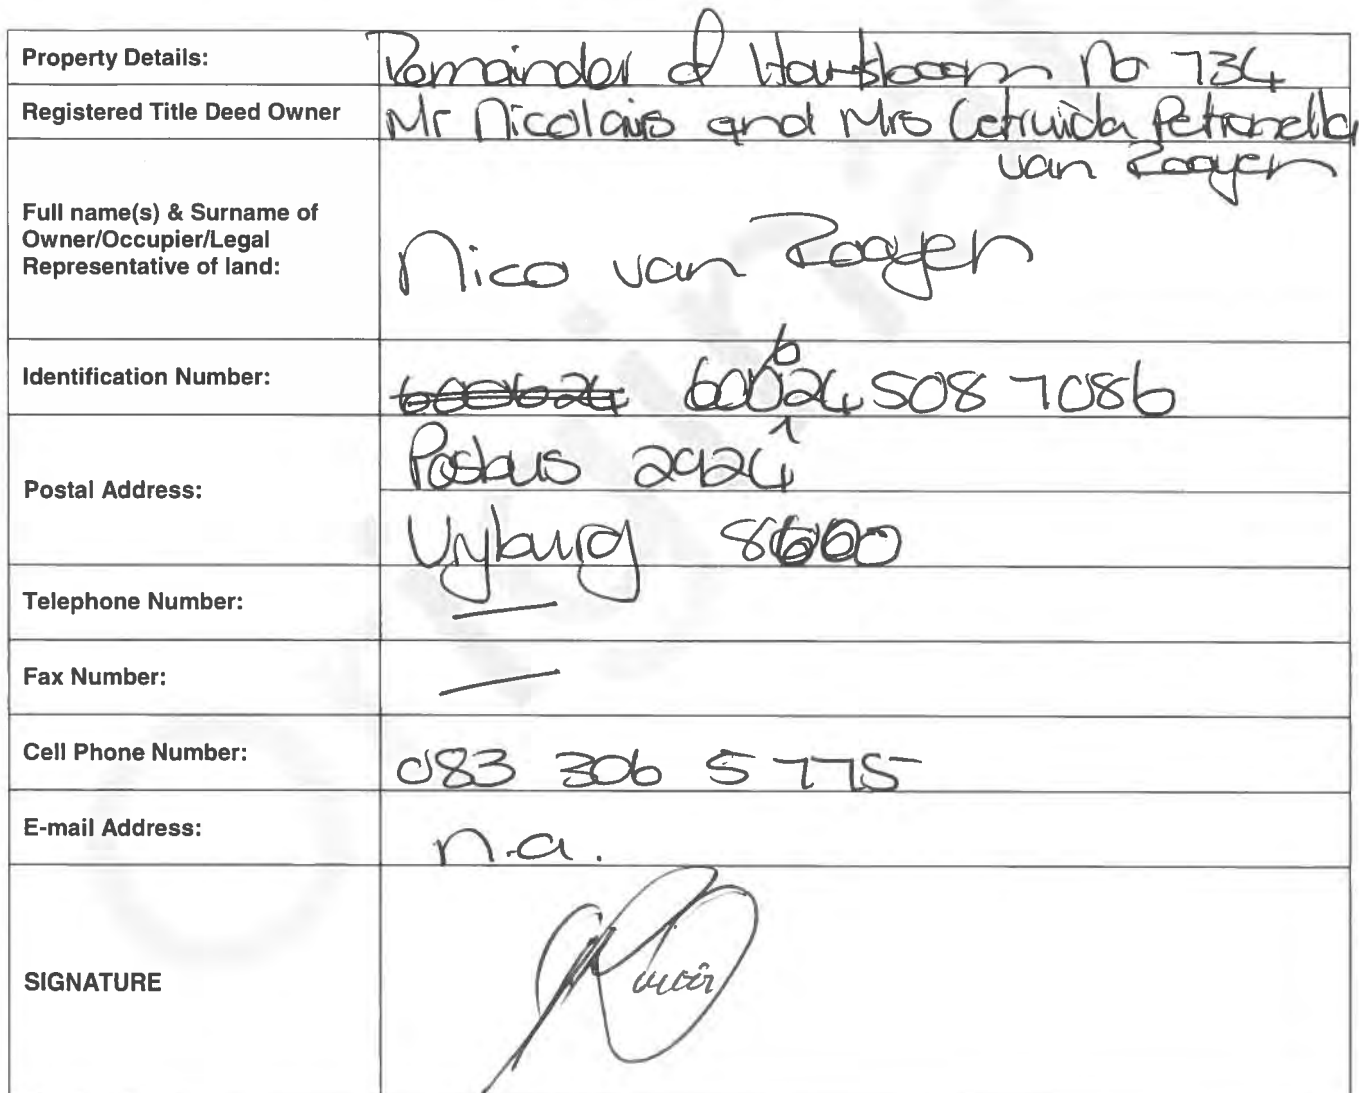 Property Details: Remainder of Hartsboom No 734
Registered Title Deed Owner Mr Nicolaas and Mrs Petronella
van Rooyen
Full name(s) & Surname of
Owner/Occupier/Legal
Representative of land:
Nico van Rooyen
Identification Number: 600624 600624 508 7086
Postal Address:
Posbus 2924
Vryburg 8600
Telephone Number: —
Fax Number: —
Cell Phone Number: 083 306 5775
E-mail Address: n.a.
SIGNATURE